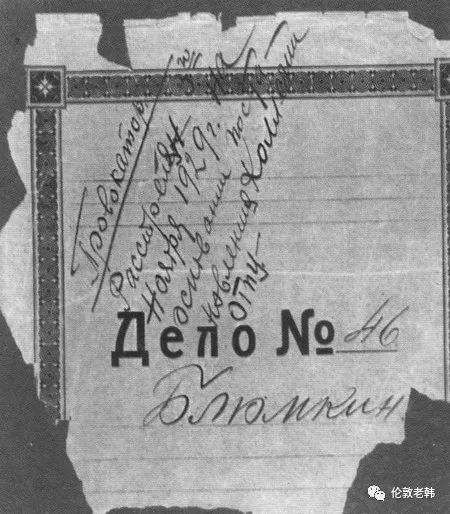 Провокатор
Расстрелян 3
Ноября 1929 г. на
основании поста-
новления Коллегии
ОГПУ
Дело № 46
Блюмкин
伦敦老韩